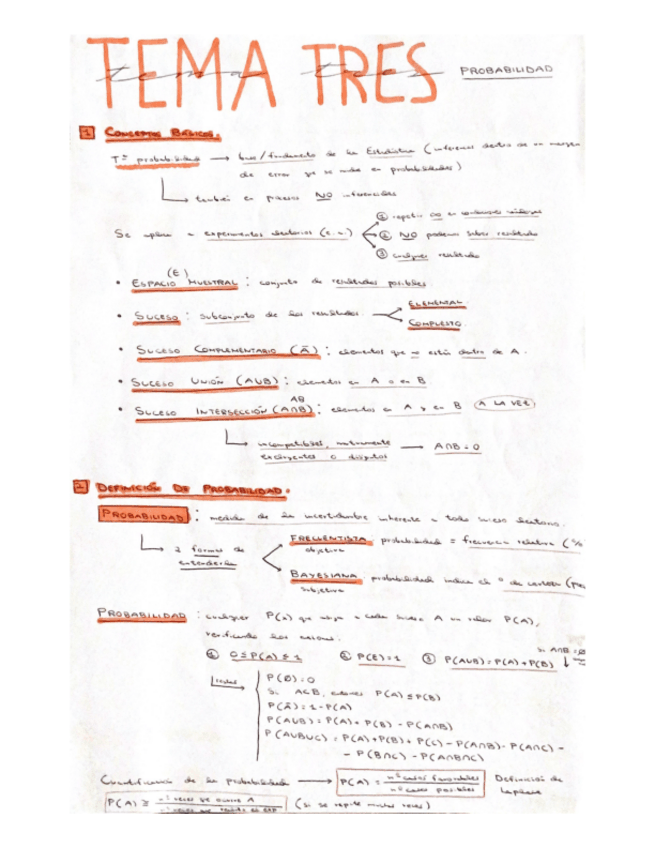 TEMA TRES
tema tres
PROBABILIDAD
1 CONCEPTOS BÁSICOS.
Tª probabilidad → base/fundamento de la Estadística (inferencias dentro de un margen
de error que se mide en probabilidades)
también en procesos NO inferenciales
① repetir ∞ en condiciones
Se aplica a experimentos aleatorios (e.a.) ② NO podemos saber resultado
③ cualquier resultado
(E)
• ESPACIO MUESTRAL : conjunto de resultados posibles
ELEMENTAL.
• SUCESO : subconjunto de los resultados.
COMPUESTO.
• SUCESO COMPLEMENTARIO (Ā) : elementos que no están dentro de A.
• SUCESO UNIÓN (A∪B) : elementos en A o en B
AB
• SUCESO INTERSECCIÓN (A∩B) : elementos en A y en B (A LA VEZ)
incompatibles, mutuamente
excluyentes o disjuntos — A∩B = 0
2 DEFINICIÓN DE PROBABILIDAD.
PROBABILIDAD : medida de la incertidumbre inherente a todo suceso aleatorio.
FRECUENTISTA probabilidad = frecuencia relativa (%
2 formas de objetiva
entenderla
BAYESIANA probabilidad indica el º de certeza
subjetiva
PROBABILIDAD : cualquier P(A) que asigna a cada suceso A un valor P(A),
verificando los axiomas:
si A∩B = Ø
① 0 ≤ P(A) ≤ 1 ② P(E) = 1 ③ P(A∪B) = P(A) + P(B)
P(Ø) = 0
Si A⊂B, entonces P(A) ≤ P(B)
P(Ā) = 1 - P(A)
P(A∪B) = P(A) + P(B) - P(A∩B)
P(A∪B∪C) = P(A) + P(B) + P(C) - P(A∩B) - P(A∩C) -
- P(B∩C) - P(A∩B∩C)
Cuantificación de la probabilidad → P(A) = nº casos favorables / nº casos posibles Definición de
Laplace
P(A) ≅ nº veces que ocurre A (si se repite muchas veces)